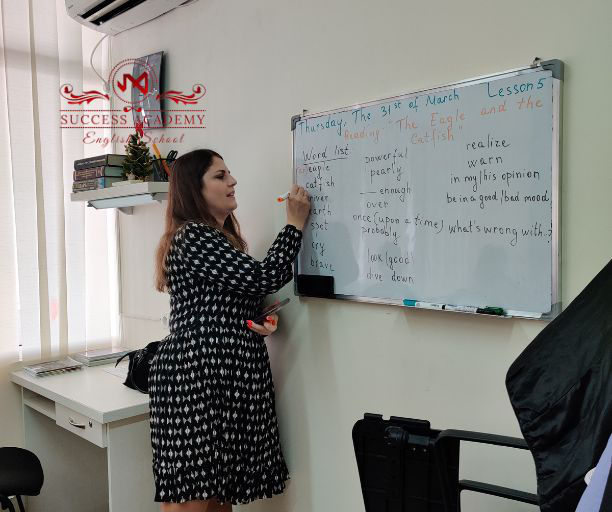 SUCCESS ACADEMY
English School
Thursday, The 31st of March Lesson 5
Reading "The Eagle and the
Catfish"
Word list
eagle
catfish
spot
cry
brave
powerful
pearly
enough
over
once (upon a time)
probably
look (good)
dive down
realize
warn
in my/his opinion
be in a good/bad mood
what's wrong with..?